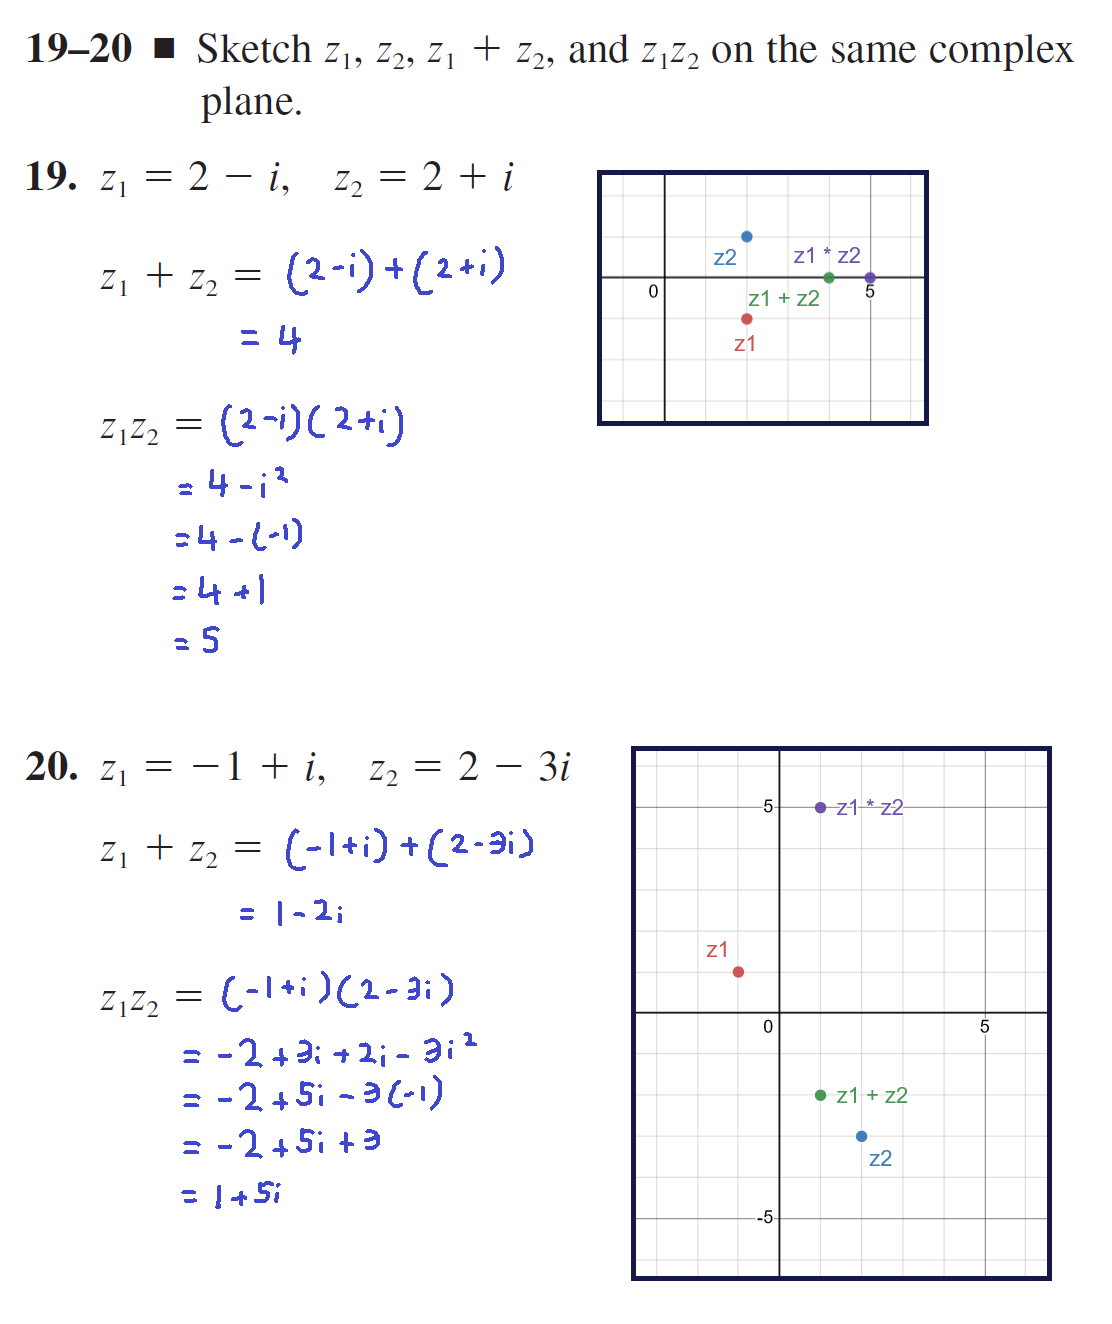 19–20 ■ Sketch z₁, z₂, z₁ + z₂, and z₁z₂ on the same complex
plane.
19. z₁ = 2 − i, z₂ = 2 + i
z₁ + z₂ = (2-i)+(2+i)
= 4
z₁z₂ = (2-i)(2+i)
= 4-i²
=4-(-1)
=4+1
=5
z2
z1 * z2
0
z1 + z2
5
z1
20. z₁ = −1 + i, z₂ = 2 − 3i
z₁ + z₂ = (-1+i)+(2-3i)
= 1-2i
z₁z₂ = (-1+i)(2-3i)
= -2+3i+2i-3i²
= -2+5i-3(-1)
= -2+5i+3
= 1+5i
5
z1 * z2
z1
0
5
z1 + z2
z2
-5